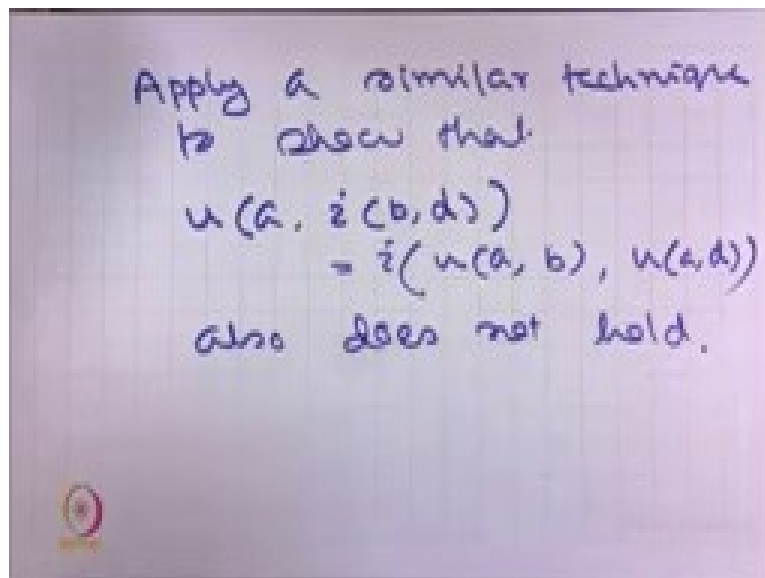 Apply a similar technique
to show that
u(a, i(b,d))
= i(u(a, b), u(a,d))
also does not hold.